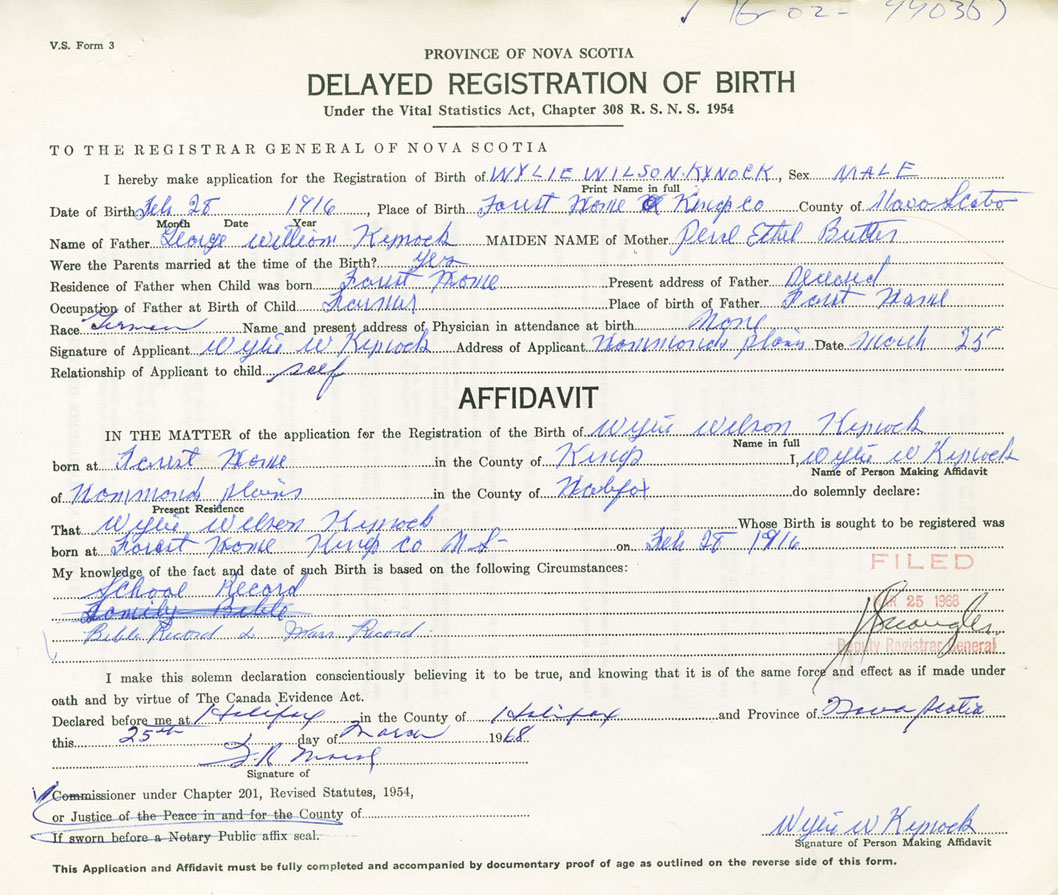 16-02-990367
V.S. Form 3
PROVINCE OF NOVA SCOTIA
DELAYED REGISTRATION OF BIRTH
Under the Vital Statistics Act, Chapter 308 R. S. N. S. 1954
TO THE REGISTRAR GENERAL OF NOVA SCOTIA
I hereby make application for the Registration of Birth of WYLIE WILSON KYNOCK, Sex MALE
Print Name in full
Date of Birth Feb 28 1916, Place of Birth Forest Home Kings co County of Nova Scotia
Month Date Year
Name of Father George William Kynock MAIDEN NAME of Mother Perl Ethel Butler
Were the Parents married at the time of the Birth? yes
Residence of Father when Child was born Forest Home Present address of Father Deceased
Occupation of Father at Birth of Child Farmer Place of birth of Father Forest Home
Race German Name and present address of Physician in attendance at birth None
Signature of Applicant Wylie W Kynock Address of Applicant Hammonds plains Date March 25
Relationship of Applicant to child self
AFFIDAVIT
IN THE MATTER of the application for the Registration of the Birth of Wylie Wilson Kynock
Name in full
born at Forest Home in the County of Kings I, Wylie W Kynock
Name of Person Making Affidavit
of Hammond plains in the County of Halifax do solemnly declare:
Present Residence
That Wylie Wilson Kynock Whose Birth is sought to be registered was
born at Forest Home Kings co N S- on Feb 28 1916
My knowledge of the fact and date of such Birth is based on the following Circumstances:
FILED
School Record
Family Bible
25 1968
Bible Record & Marr. Record.
Deputy Registrar General
I make this solemn declaration conscientiously believing it to be true, and knowing that it is of the same force and effect as if made under
oath and by virtue of The Canada Evidence Act.
Declared before me at Halifax in the County of Halifax and Province of Nova Scotia
this 25th day of March 1968
Signature of
Commissioner under Chapter 201, Revised Statutes, 1954,
or Justice of the Peace in and for the County of
If sworn before a Notary Public affix seal.
Wylie W Kynock
Signature of Person Making Affidavit
This Application and Affidavit must be fully completed and accompanied by documentary proof of age as outlined on the reverse side of this form.